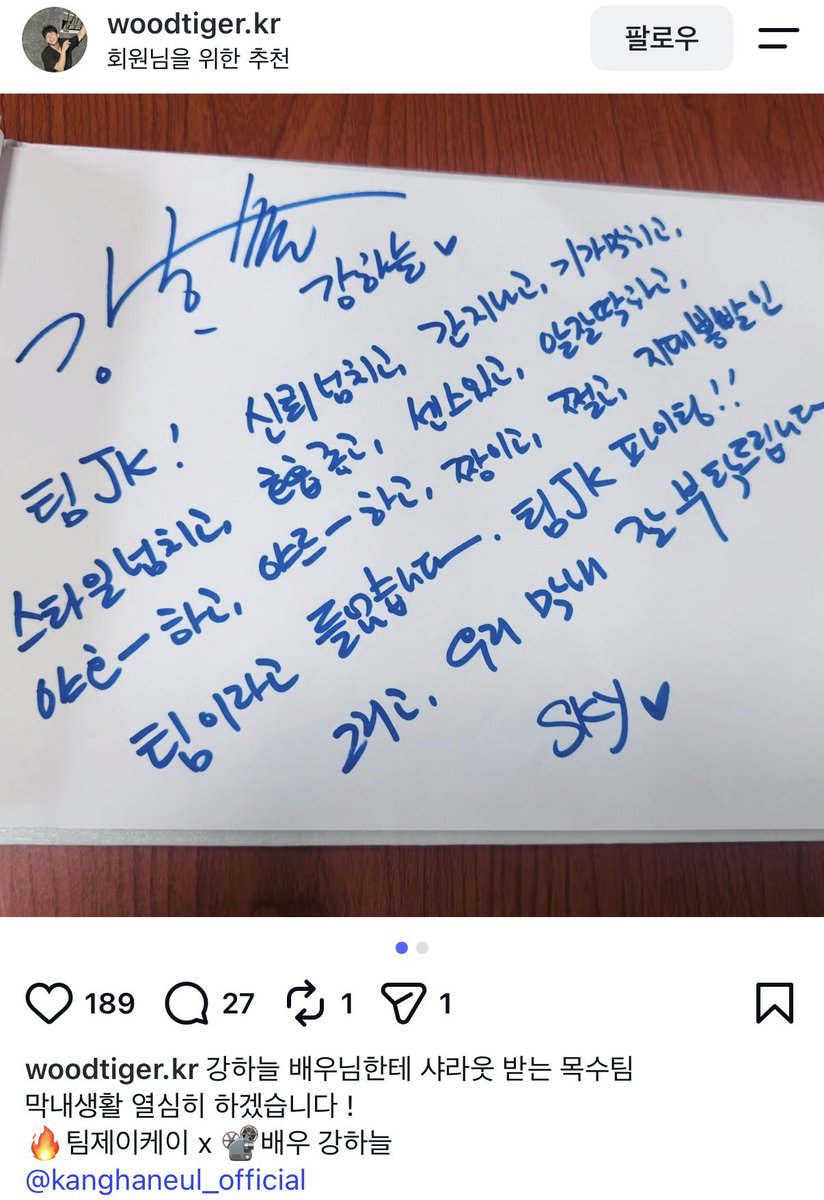 woodtiger.kr
회원님을 위한 추천
팔로우
강하늘
팀JK! 신뢰넘치고, 간지나고, 기가막히고,
스타일넘치고, 호흡좋고, 센스있고, 알잘딱하고,
야호ㅡ하고, 야르ㅡ하고, 짱이고, 쩔고, 지대뽕빨인
팀이라고 들었습니다. 팀JK 파이팅!!
그리고, 우리 막내 잘 부탁드립니다
SKY
189
27
1
1
woodtiger.kr 강하늘 배우님한테 샤라웃 받는 목수팀
막내생활 열심히 하겠습니다 !
🔥팀제이케이 x 📽️배우 강하늘
@kanghaneul_official